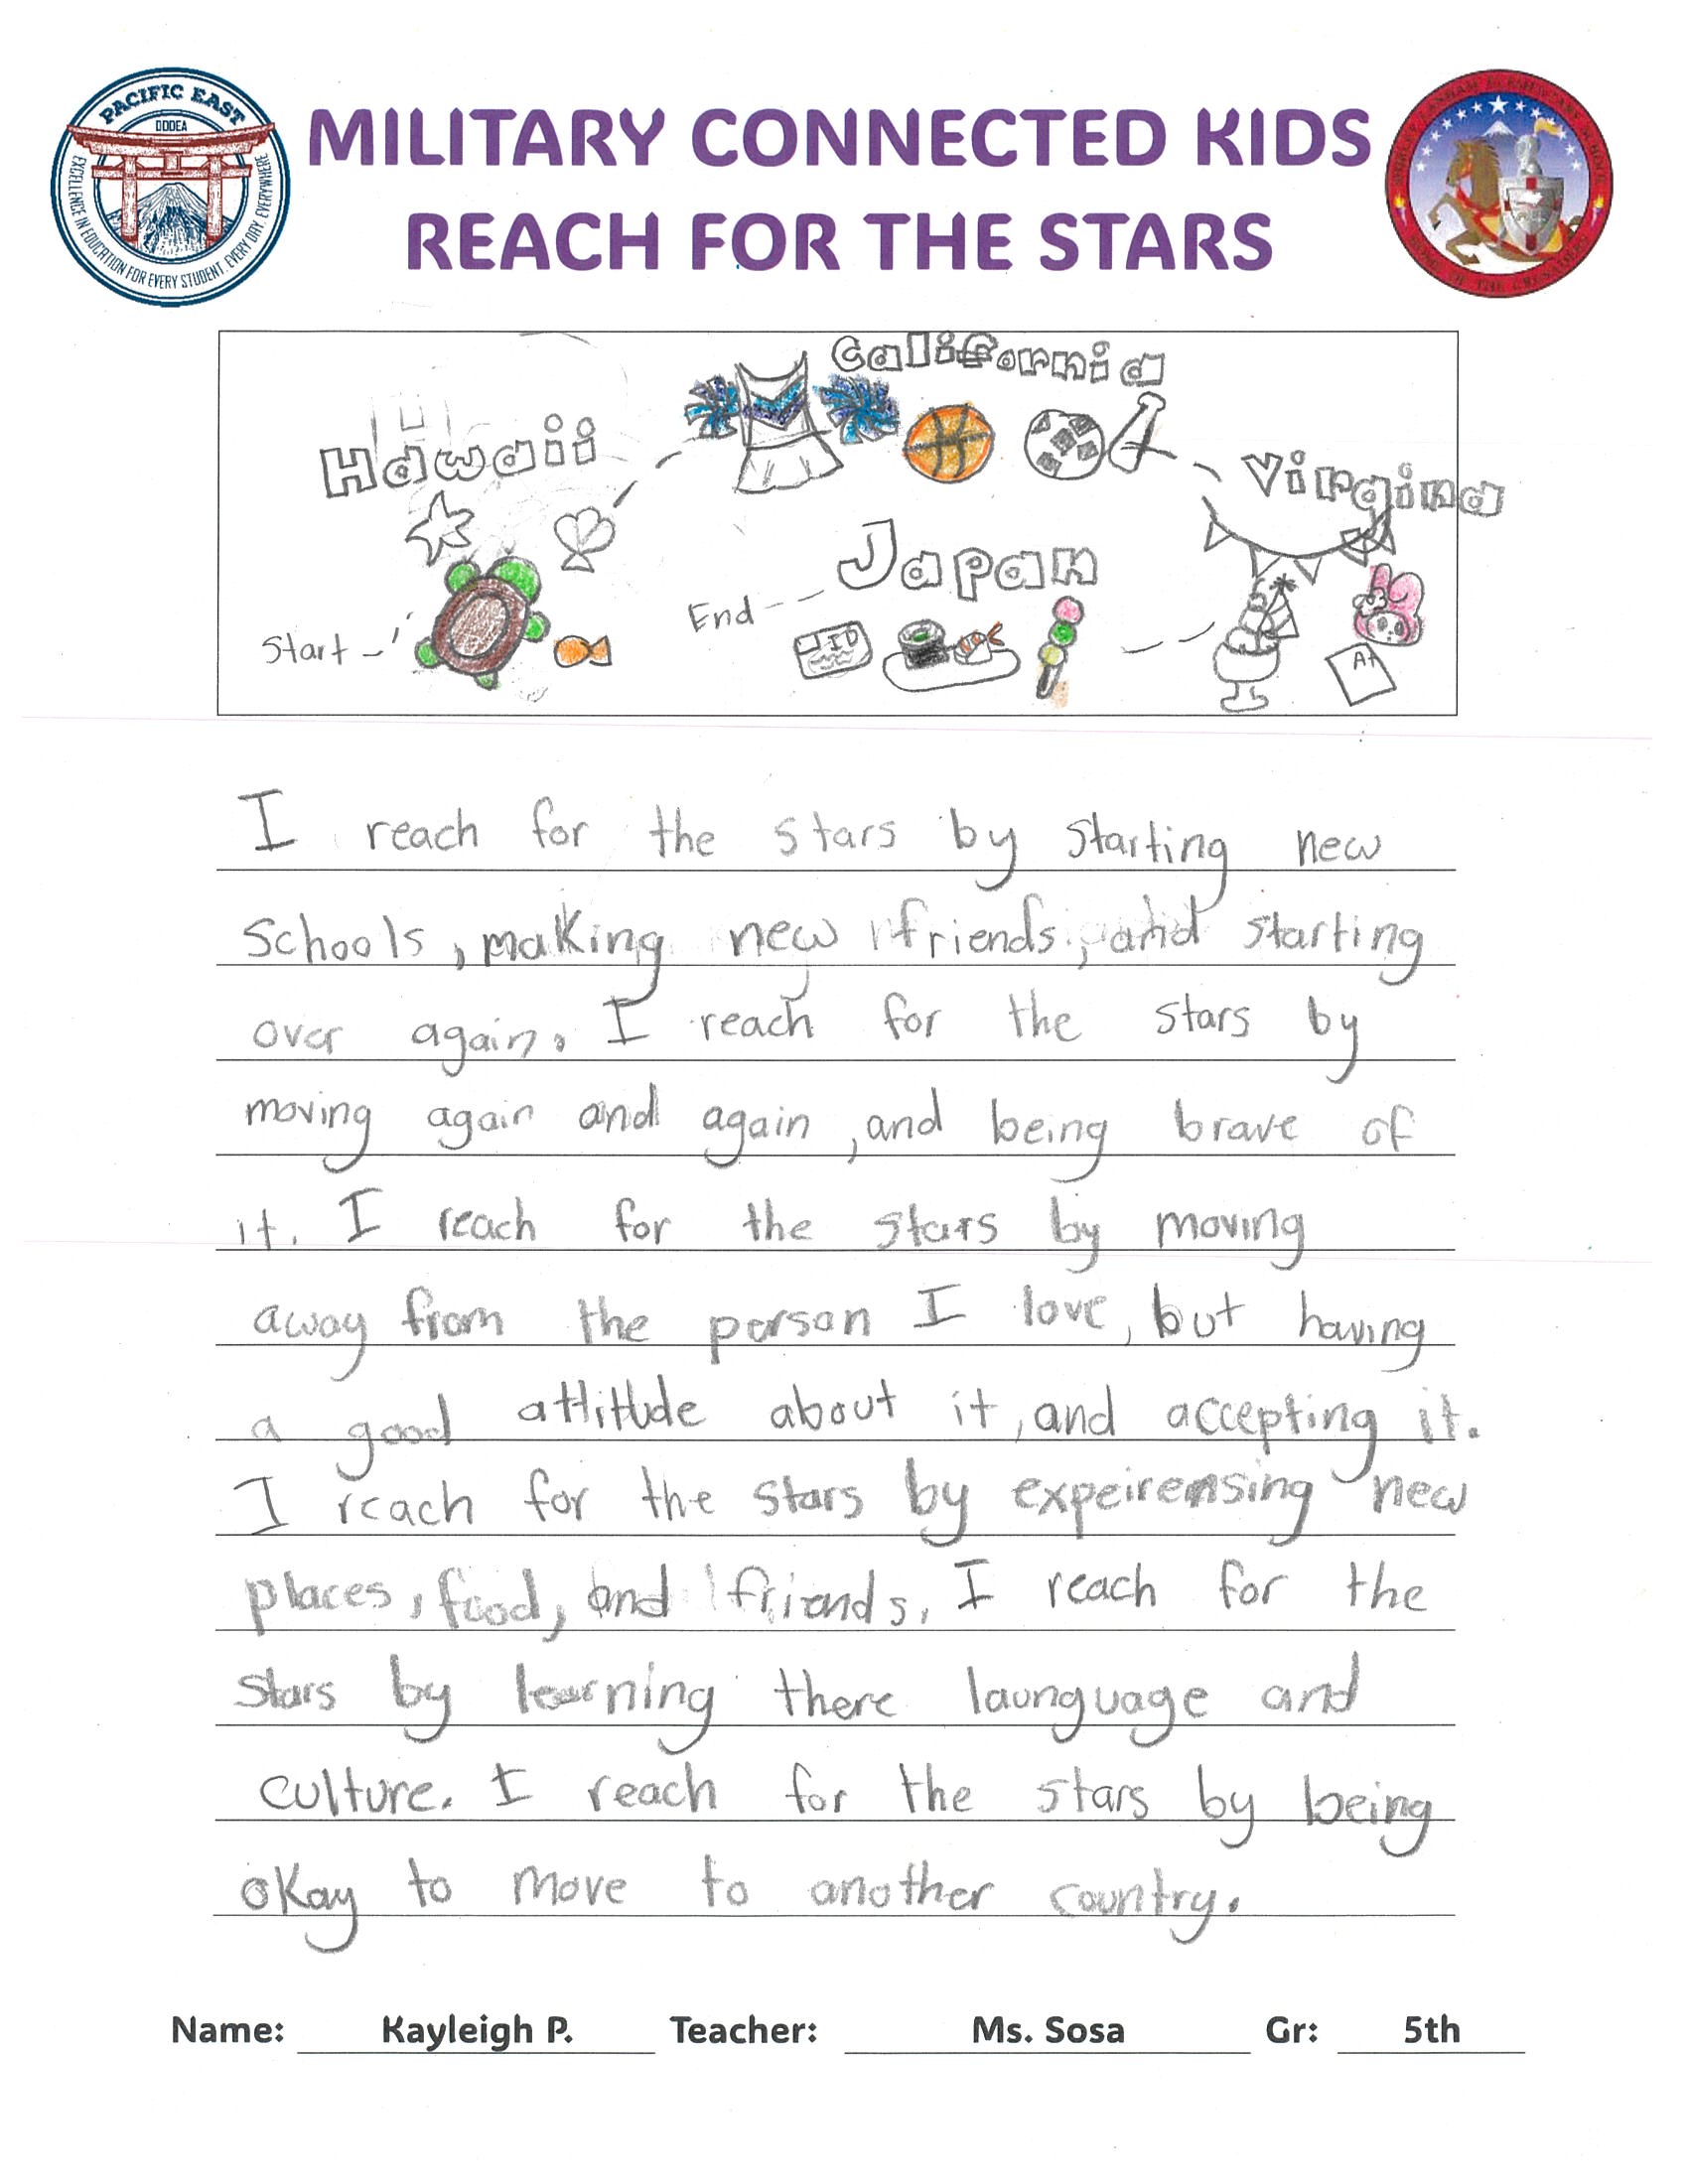 PACIFIC EAST
DODEA
EXCELLENCE IN EDUCATION FOR EVERY STUDENT, EVERY DAY, EVERYWHERE
MILITARY CONNECTED KIDS
REACH FOR THE STARS
California
Hawaii
Virgina
Japan
End
Start
ID
A+
I reach for the stars by starting new
schools, making new friends, and starting
over again. I reach for the stars by
moving again and again, and being brave of
it. I reach for the stars by moving
away from the person I love, but having
a good attitude about it, and accepting it.
I reach for the stars by expeirensing new
places, food, and friends. I reach for the
stars by learning there launguage and
culture. I reach for the stars by being
okay to move to another country.
Name: Kayleigh P. Teacher: Ms. Sosa Gr: 5th